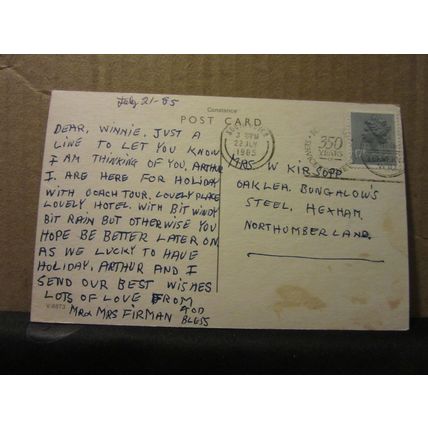 July 21-85
Constance
POST CARD
DEAR, WINNIE. JUST A
LINE TO LET YOU KNOW
I AM THINKING OF YOU. ARTHUR
I. ARE HERE FOR HOLIDAY
WITH COACH TOUR. LOVELY PLACE
LOVELY HOTEL. WITH BIT WINDY
BIT RAIN BUT OTHERWISE YOU
HOPE BE BETTER LATER ON
AS WE LUCKY TO HAVE
HOLIDAY. ARTHUR AND I
SEND OUR BEST WISHES
LOTS OF LOVE FROM
MR & MRS FIRMAN GOD
BLESS
V.6573
3 PM
22 JLY
1985
350
YEARS
MRS. W KIRSOPP.
OAKLEA. BUNGALOW'S
STEEL, HEXHAM,
NORTHUMBERLAND.